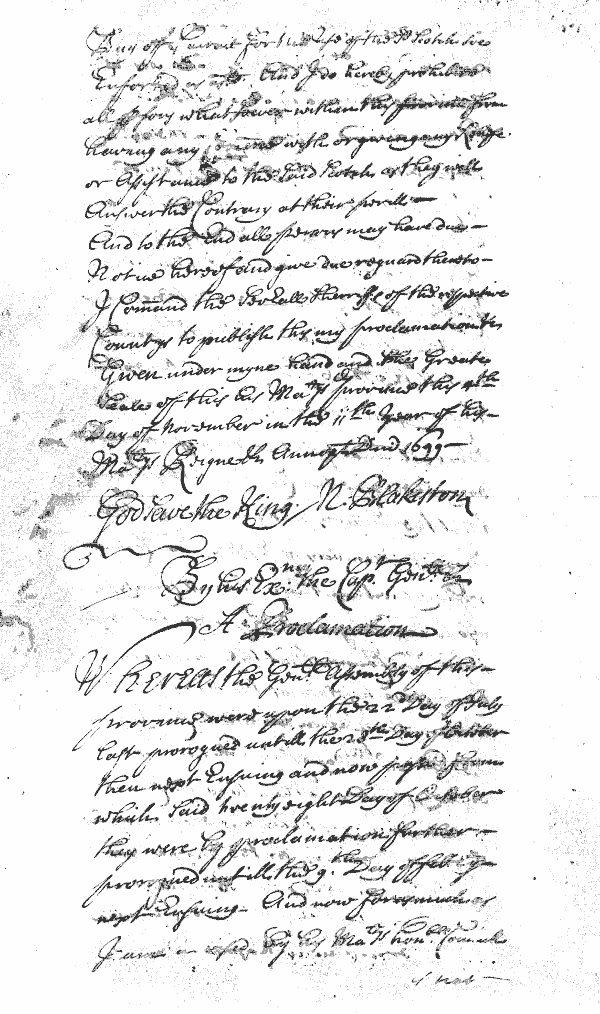 any off, for the use of the Sd Scotch
Enforted as afd. And I do hereby prohibite
all psons whatsoever without
having any with or giveing any
or Assistance to the said Scotch as they will
Answer the Contrary at their perill
And to the End all persons may have due
Notice hereof and give due reguard thereto
I Command the severall Sherriffs of the respective
Countys to publish this my proclamation
Given under myne hand and the Greate
Seale of this his Matys province this
Day of November in the 11th Year of his
Matys Reigne &c Annoq Dni 1699
God save the King N. Blakiston
By his Exncy the Capt Genll &c
A Proclamation
Whereas the Genll Assembly of this
province were upon the 22d Day of July
last prorogued untill the 28th Day of October
then next Ensuing and now from
which said twenty eight Day of October
they were by proclamation further
prorogued untill the 9th Day of
next Ensuing And now
I am by his Matys honble Councill
that